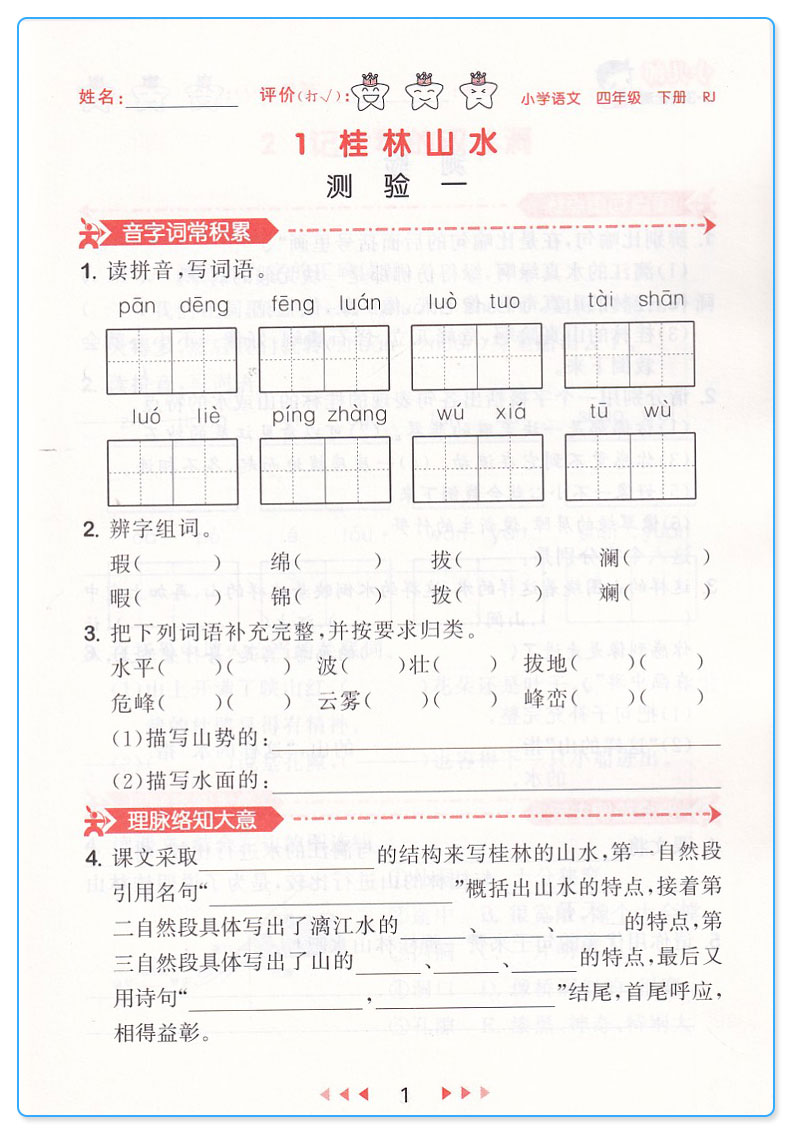 姓名：________ 评价(打√)： 小学语文 四年级 下册 RJ
1 桂林山水
测 验 一
音字词常积累
1. 读拼音，写词语。
pān dēng fēng luán luò tuo tài shān
luó liè píng zhàng wú xiá tū wù
2. 辨字组词。
瑕( ) 绵( ) 拔( ) 澜( )
暇( ) 锦( ) 拨( ) 斓( )
3. 把下列词语补充完整，并按要求归类。
水平( )( ) 波( )壮( ) 拔地( )( )
危峰( )( ) 云雾( )( ) 峰峦( )( )
(1)描写山势的：________
(2)描写水面的：________
理脉络知大意
4. 课文采取________的结构来写桂林的山水，第一自然段
引用名句“________”概括出山水的特点，接着第
二自然段具体写出了漓江水的____、____、____的特点，第
三自然段具体写出了山的____、____、____的特点，最后又
用诗句“________，________”结尾，首尾呼应，
相得益彰。
1